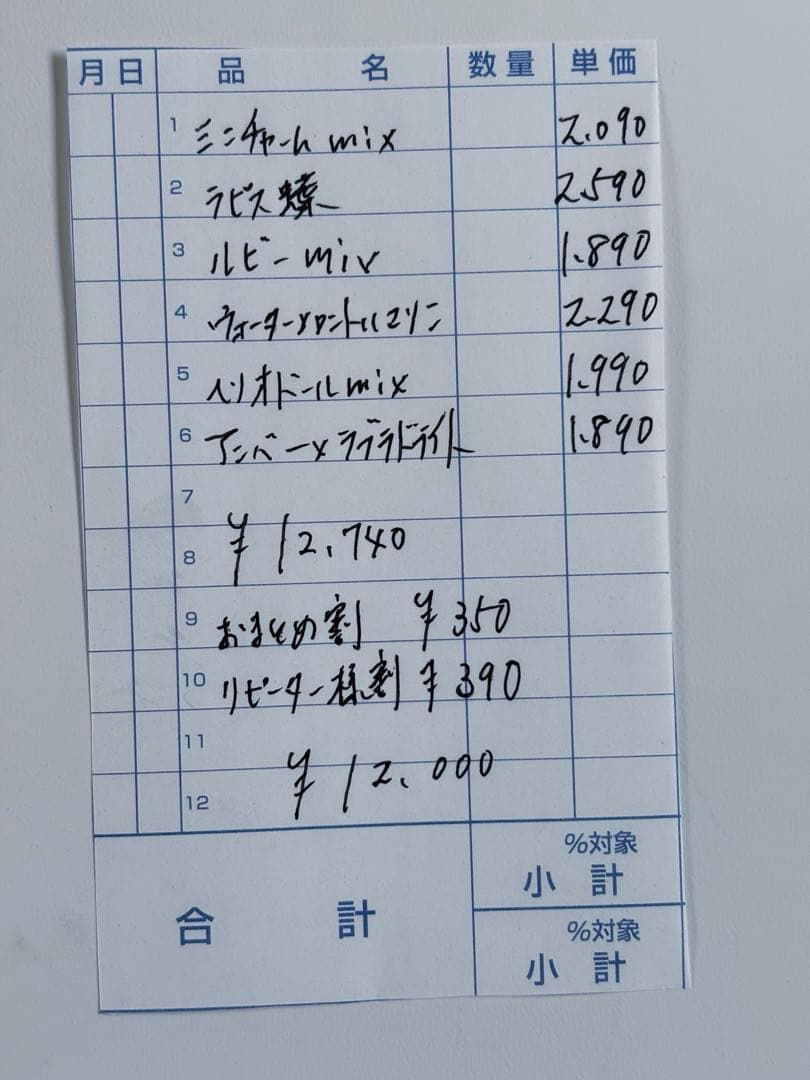 月 日 品 名 数量 単価
1 ミニチャーム mix 2.090
2 ラピス蝶 2.590
3 ルビー mix 1.890
4 ウォーターメロントルマリン 2.290
5 ヘリオドール mix 1.990
6 アンバー×ラブラドライト 1.890
7
8 ¥12.740
9 おまとめ割 ¥350
10 リピーター様割 ¥390
11
12 ¥12.000
合 計
%対象
小 計
%対象
小 計